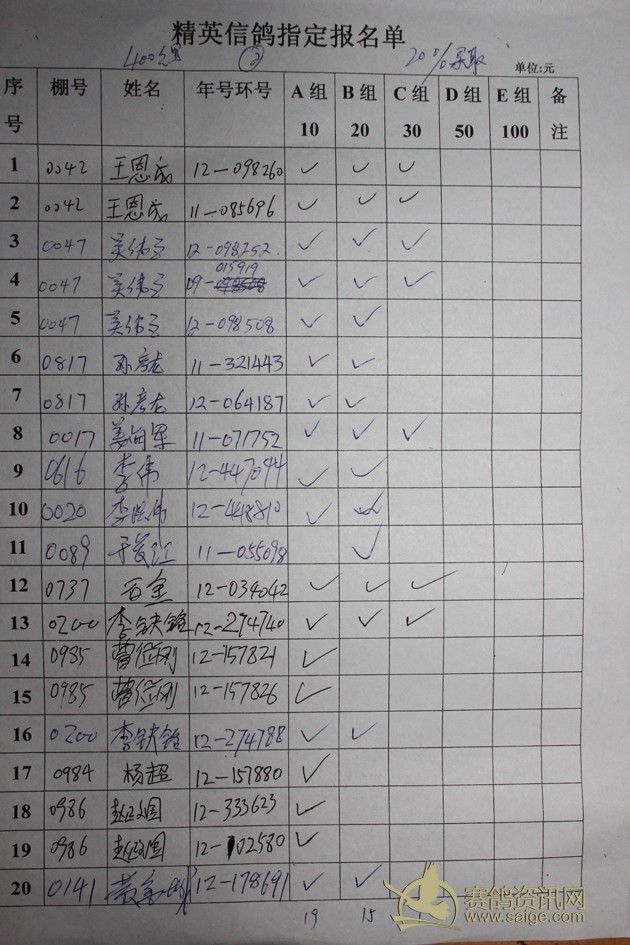 精英信鸽指定报名单
400公里 ② 20%录取
单位:元
序号 棚号 姓名 年号环号 A组10 B组20 C组30 D组50 E组100 备注
1 0042 王恩成 12-098260 ✓ ✓ ✓
2 0042 王恩成 11-085696 ✓ ✓ ✓
3 0047 吴伟 12-098252. ✓ ✓ ✓
015919
4 0047 吴伟 09- ✓ ✓ ✓
5 0047 吴伟 12-098508 ✓ ✓
6 0817 孙彦龙 11-321443 ✓ ✓
7 0817 孙彦龙 12-064187 ✓ ✓
8 0017 姜向军 11-071752 ✓ ✓ ✓
9 0616 李伟 12-447094 ✓ ✓
10 0020 李伟 12-448810 ✓ ✓
11 0089 于江 11-055098 ✓
12 0737 石金 12-034042 ✓ ✓ ✓
13 0200 李铁 12-274740 ✓ ✓ ✓
14 0985 曹刚 12-157821 ✓
15 0985 曹刚 12-157826 ✓
16 0200 李铁 12-274788 ✓ ✓
17 0984 杨超 12-157880 ✓
18 0986 赵国 12-333623 ✓
19 0986 赵国 12-102580 ✓
20 0141 黄 12-178691 ✓ ✓
19 15
赛鸽资讯网
www.saige.com